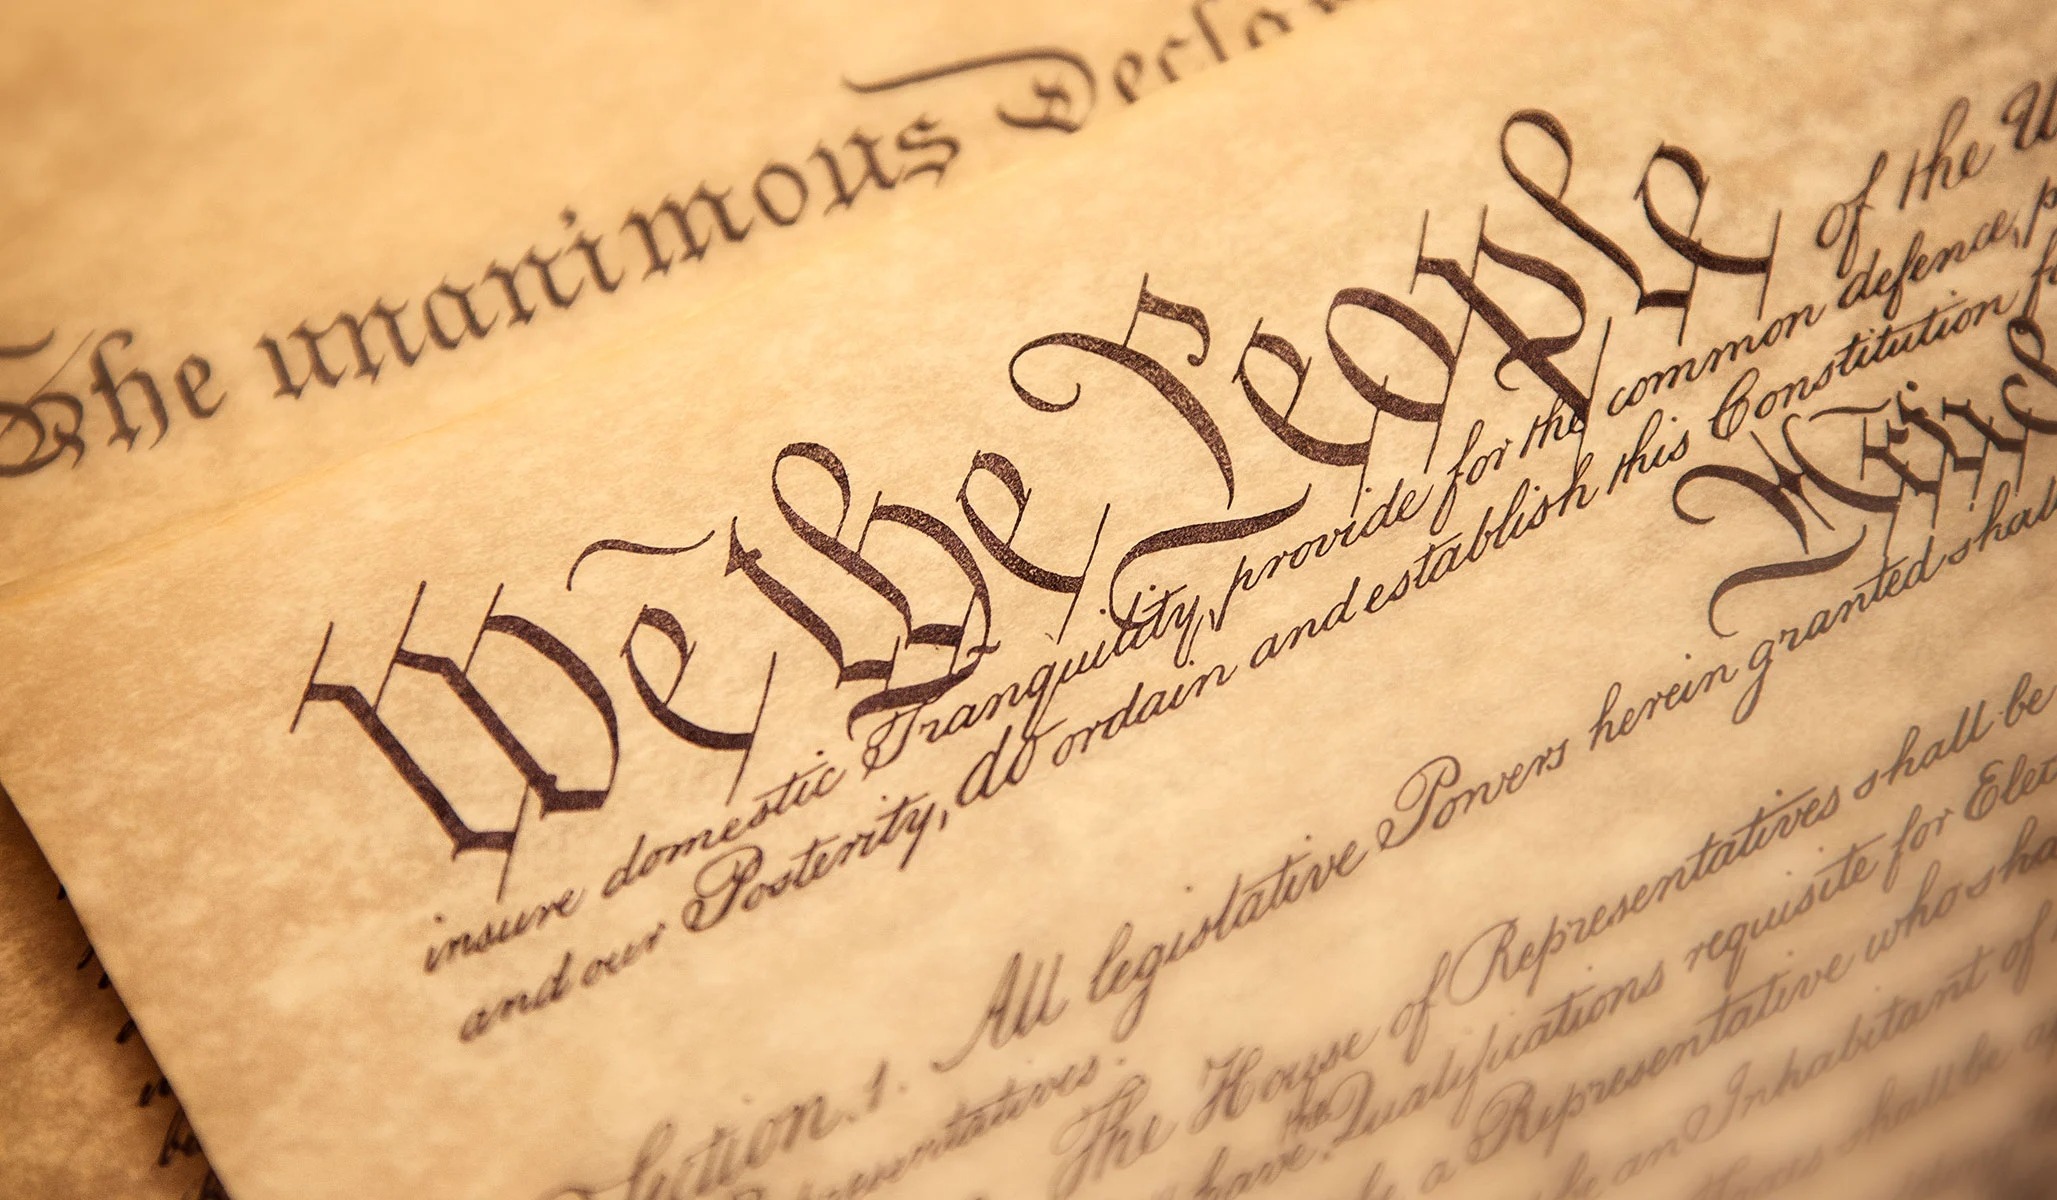 The unanimous Decla
We the People of the U
insure domestic Tranquility, provide for the common defence, p
and our Posterity, do ordain and establish this Constitution fo
Article
Section. 1. All legislative Powers herein granted shall
Representatives.
The House of Representatives shall be
have the Qualifications requisite for Elect
be a Representative who sha
be an Inhabitant of
shall be